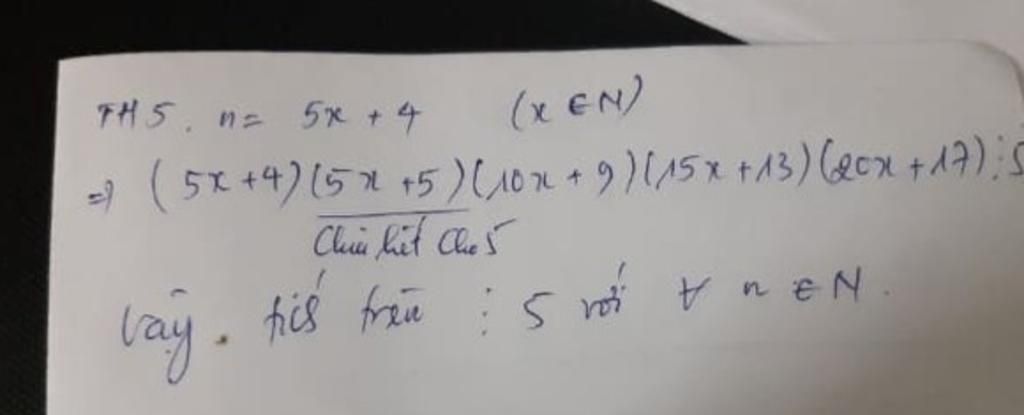 TH5. n = 5x + 4 (x ∈ N)
=) (5x+4)(5x+5)(10x+9)(15x+13)(20x+17)⋮5
Chia hết cho 5
Vậy. tích trên ⋮ 5 với ∀ n ∈ N.